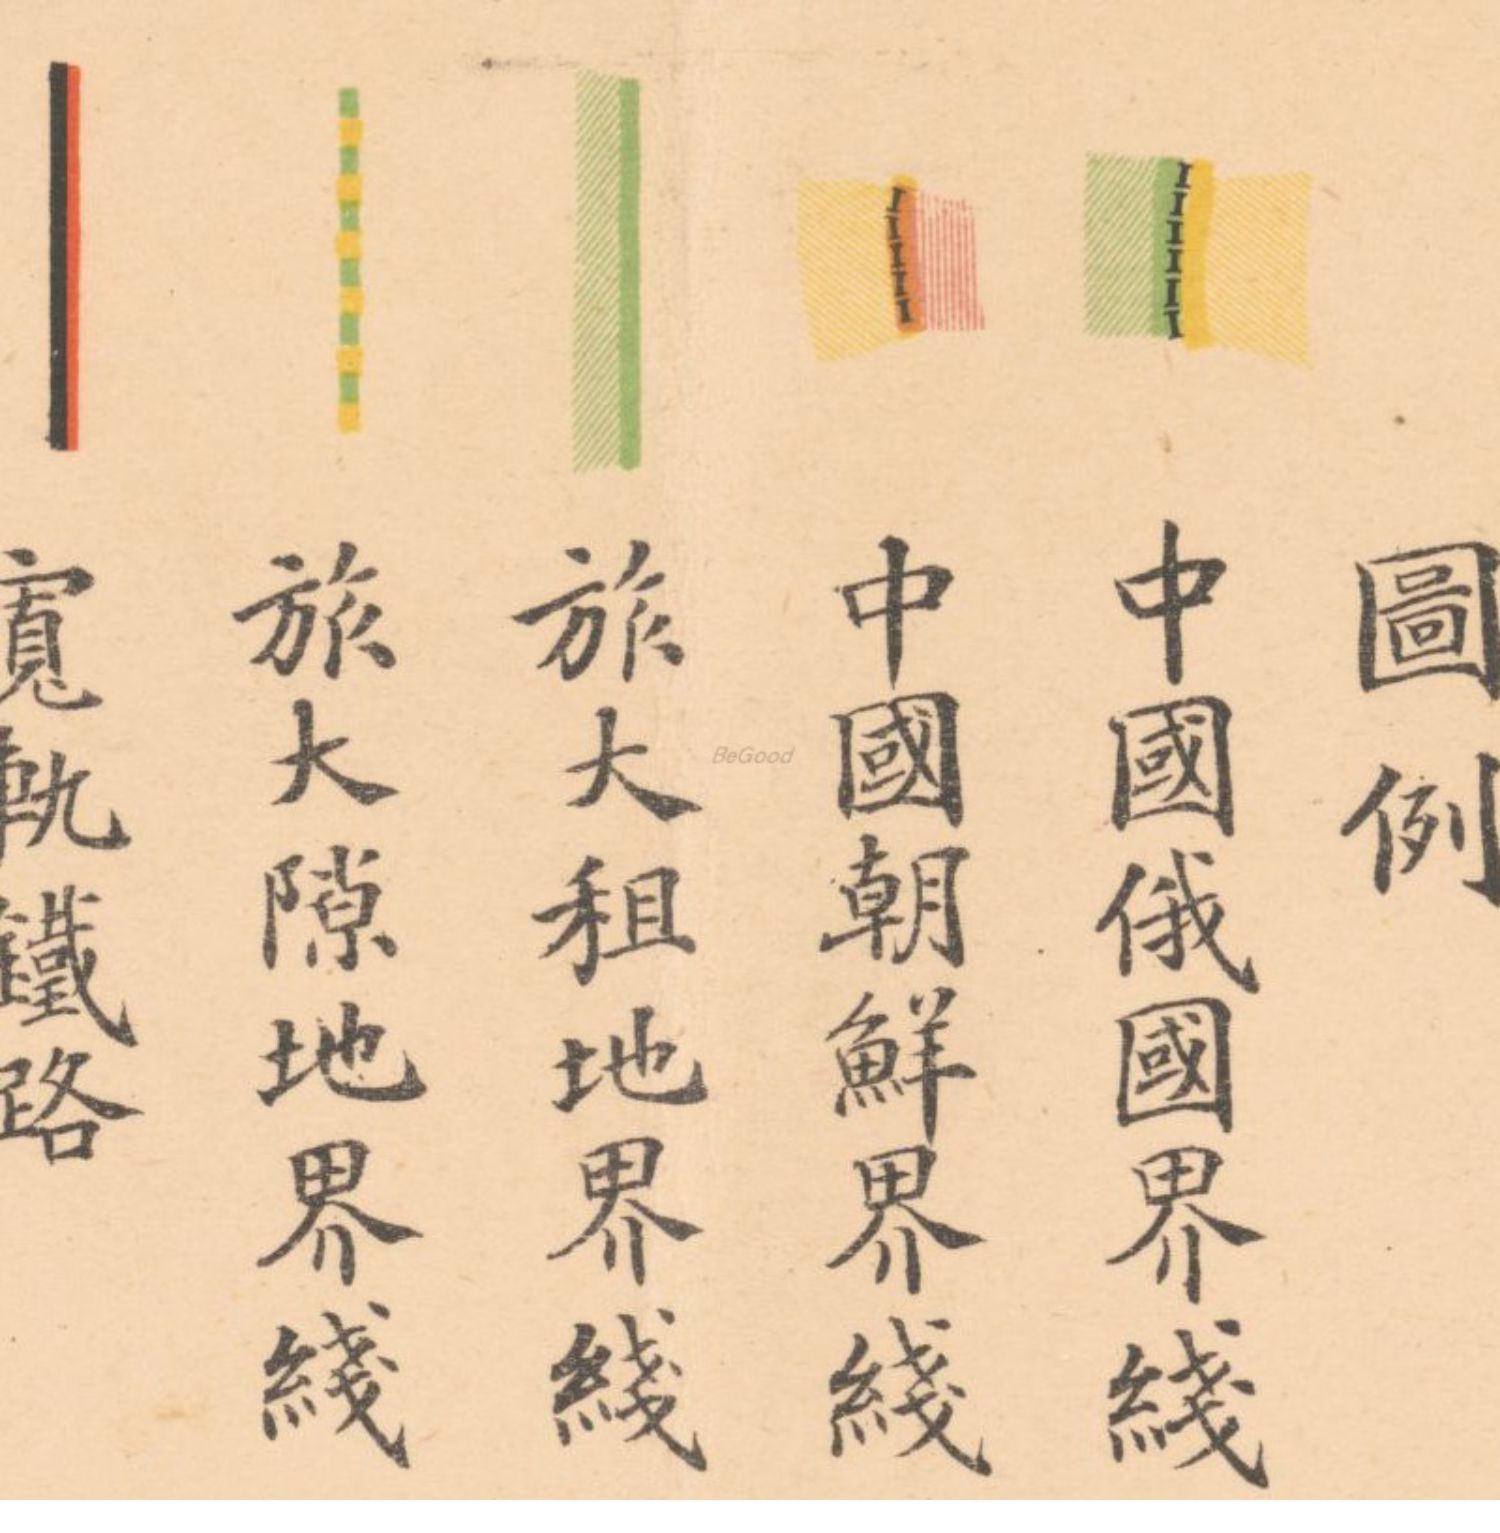 圖例
中國俄國界綫
中國朝鮮界綫
旅大租地界綫
旅大隙地界綫
寬軌鐵路
BeGood